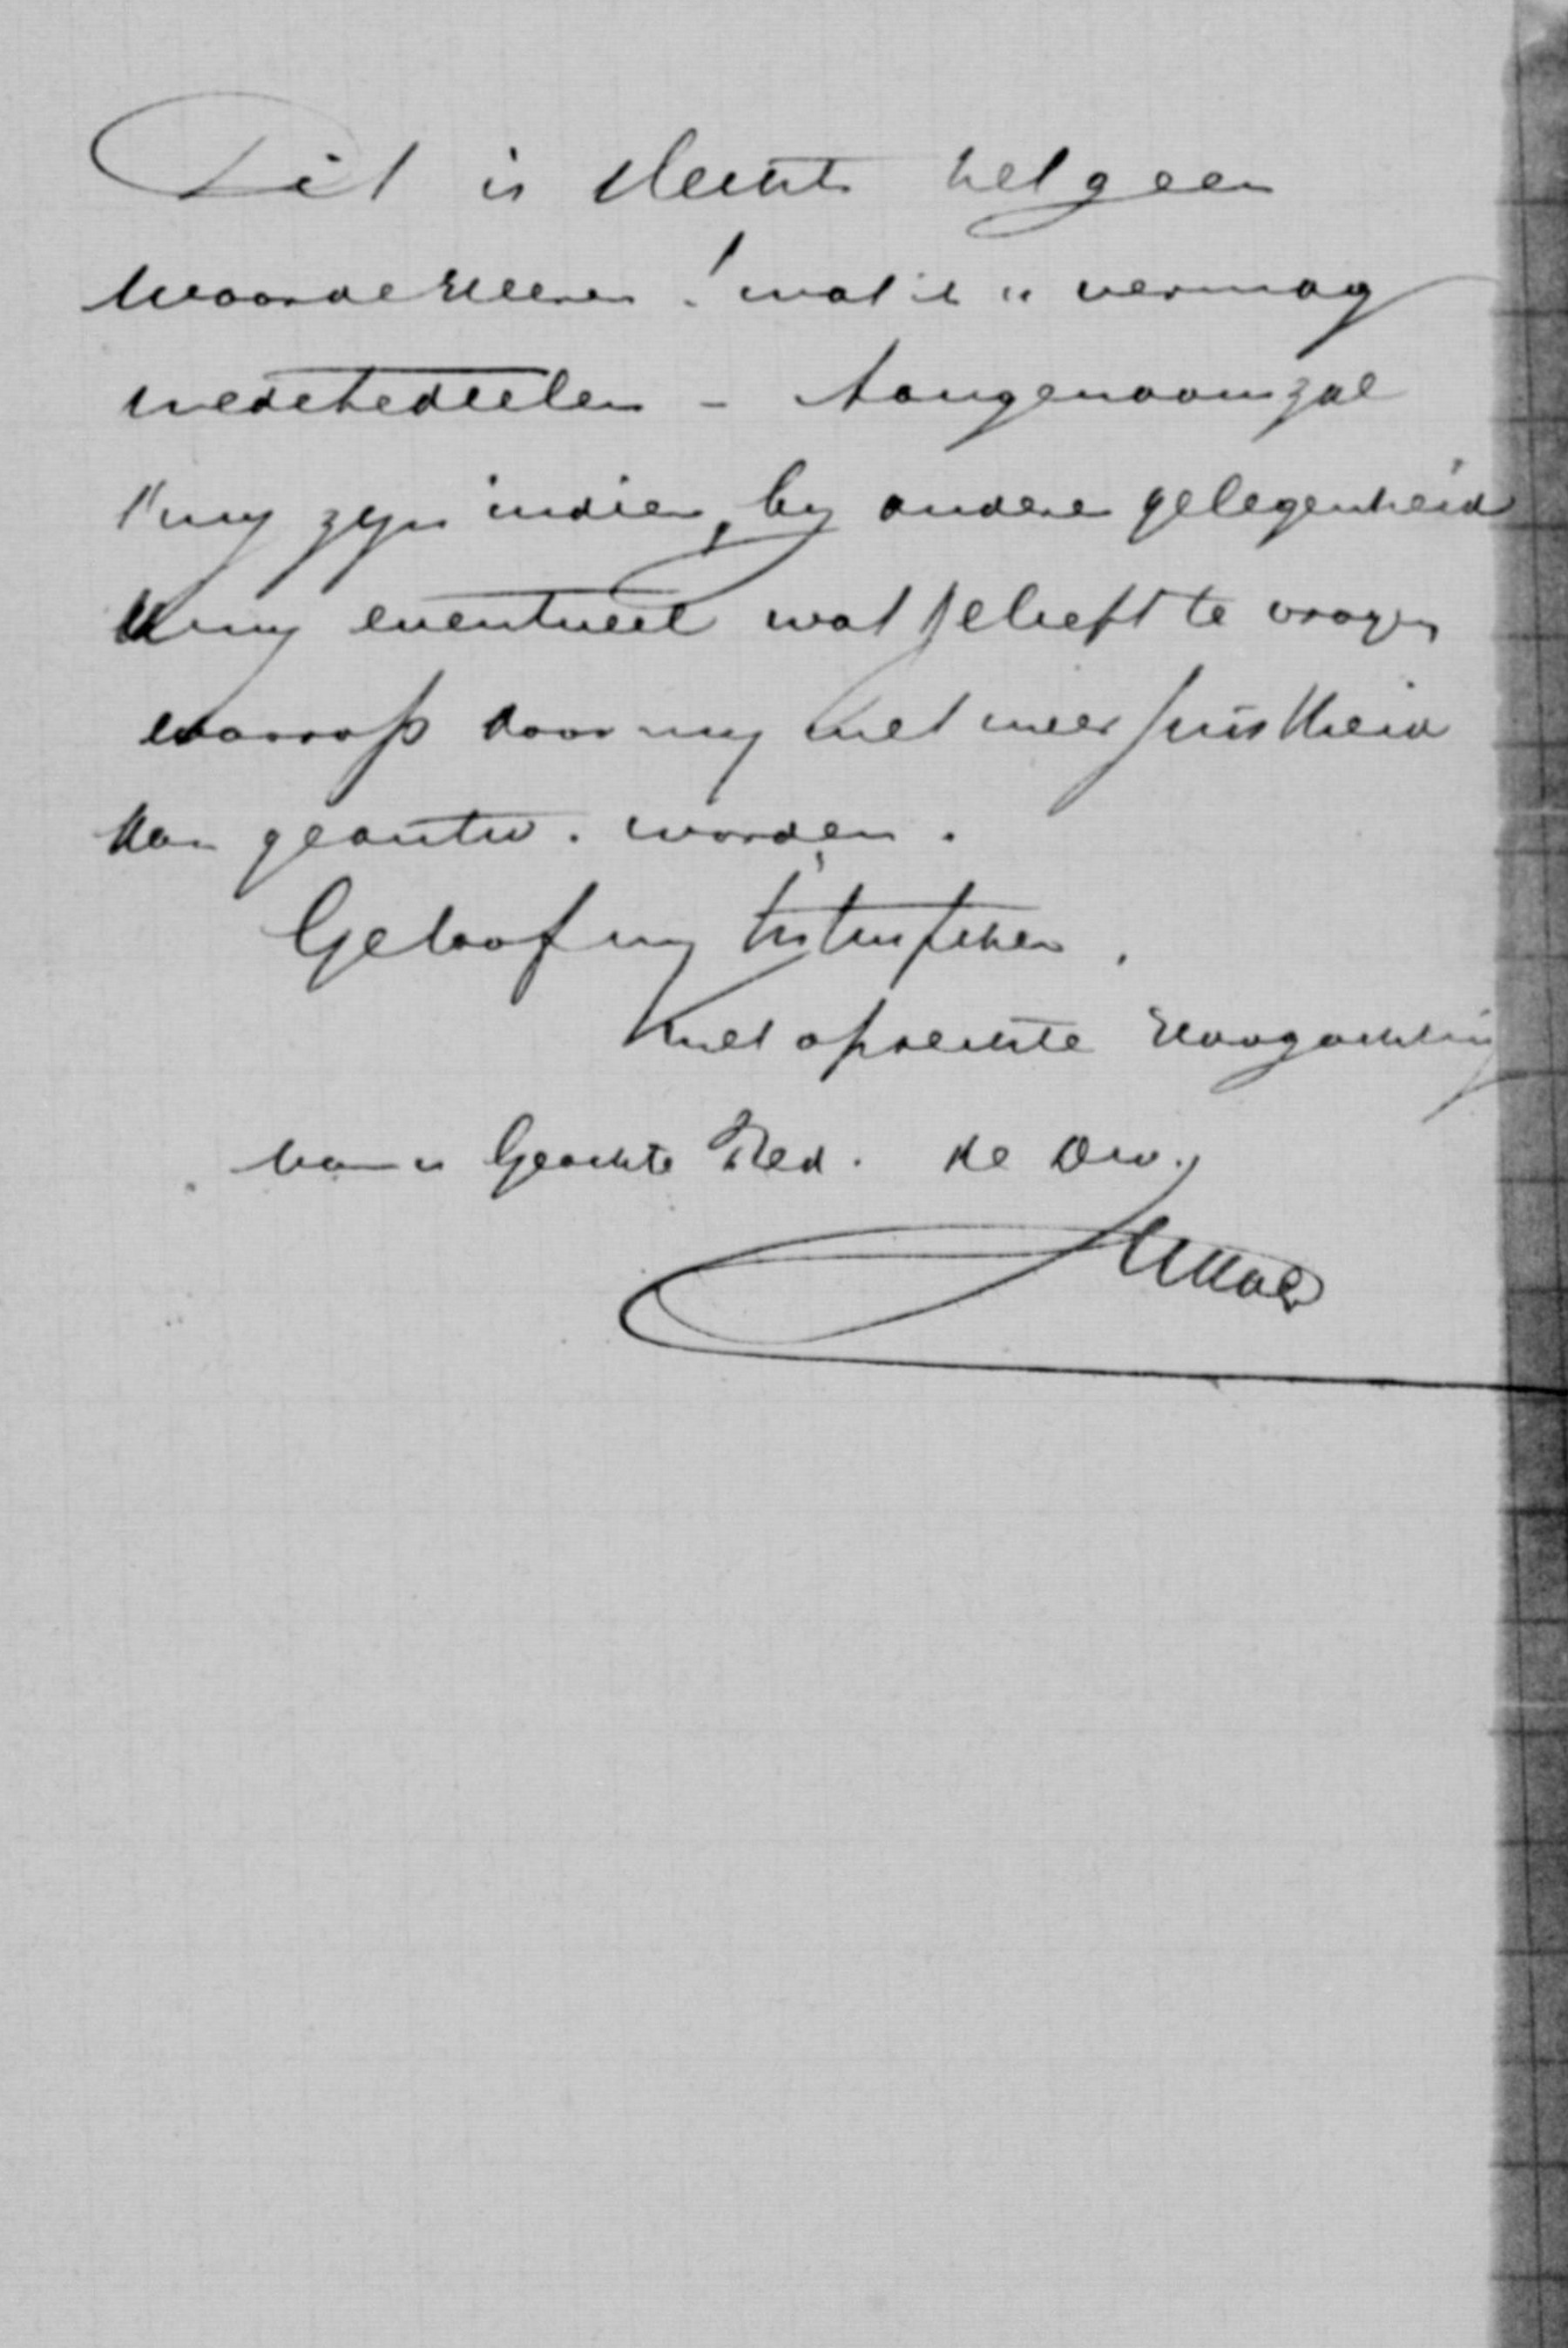 Dit is slechts hetgeen
Waarde Heeren! wat ik u vermag
mede te deelen - Aangenaam zal
't my zyn indien, by andere gelegenheid
U my eventueel wat gelieft te vragen
waarop door my met meer juistheid
kan geantw. worden.
Geloof my
met oprechte Hoogachting
van u Geachte Red. de Dw.